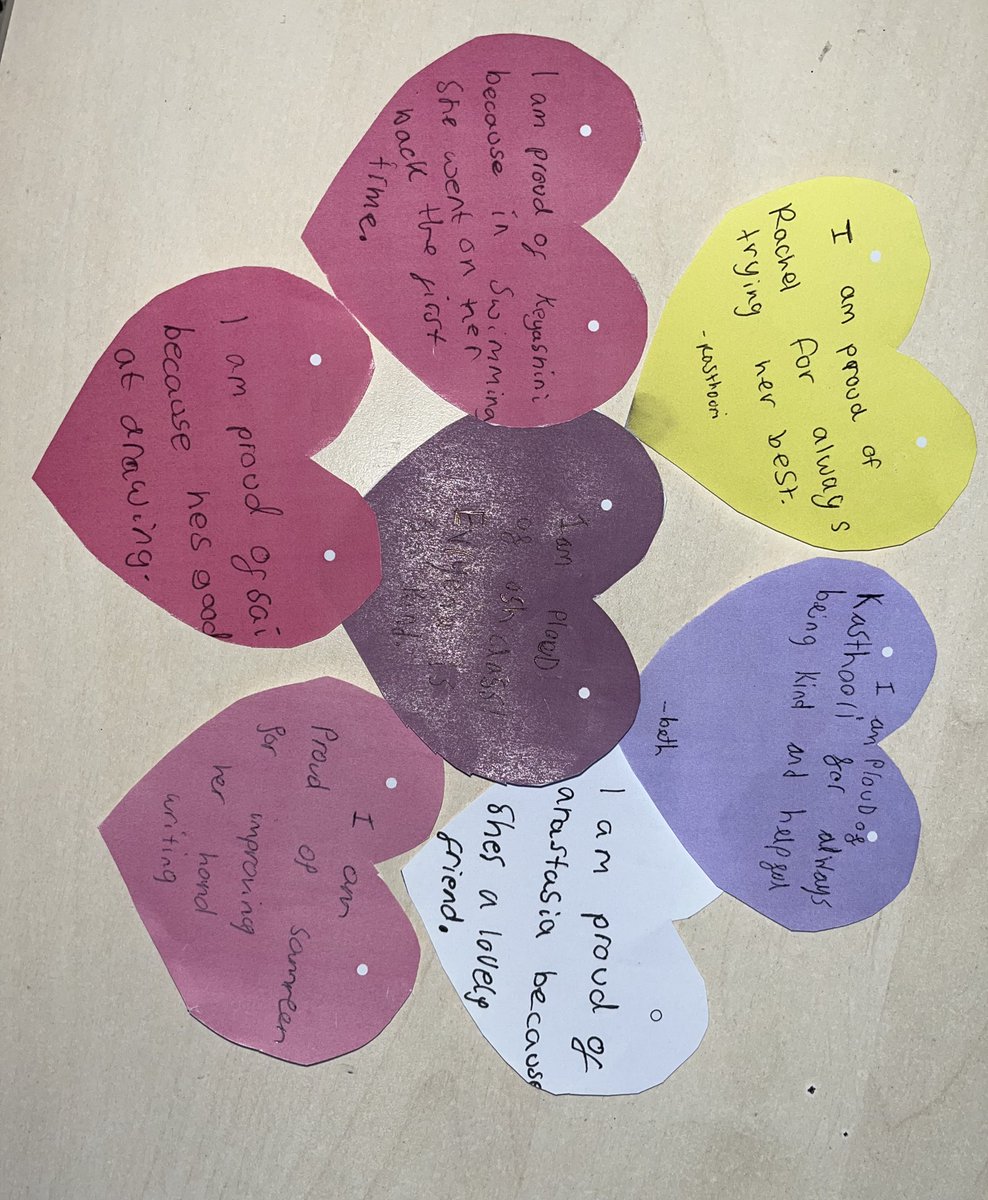 I am proud of
Rachel for always
trying her best.
-Kasthoori
I am ploud of
Kasthoori for always
being kind and helpful
-beth
I am proud of Keyashini
because in swimming
She went on her
back the first
time.
I am ploud
of ash class
is
I am proud of
anastasia because
shes a lovely
friend.
I am proud of sai
because hes good
at drawing.
I am
Proud of samreen
for improving
her hand
writing